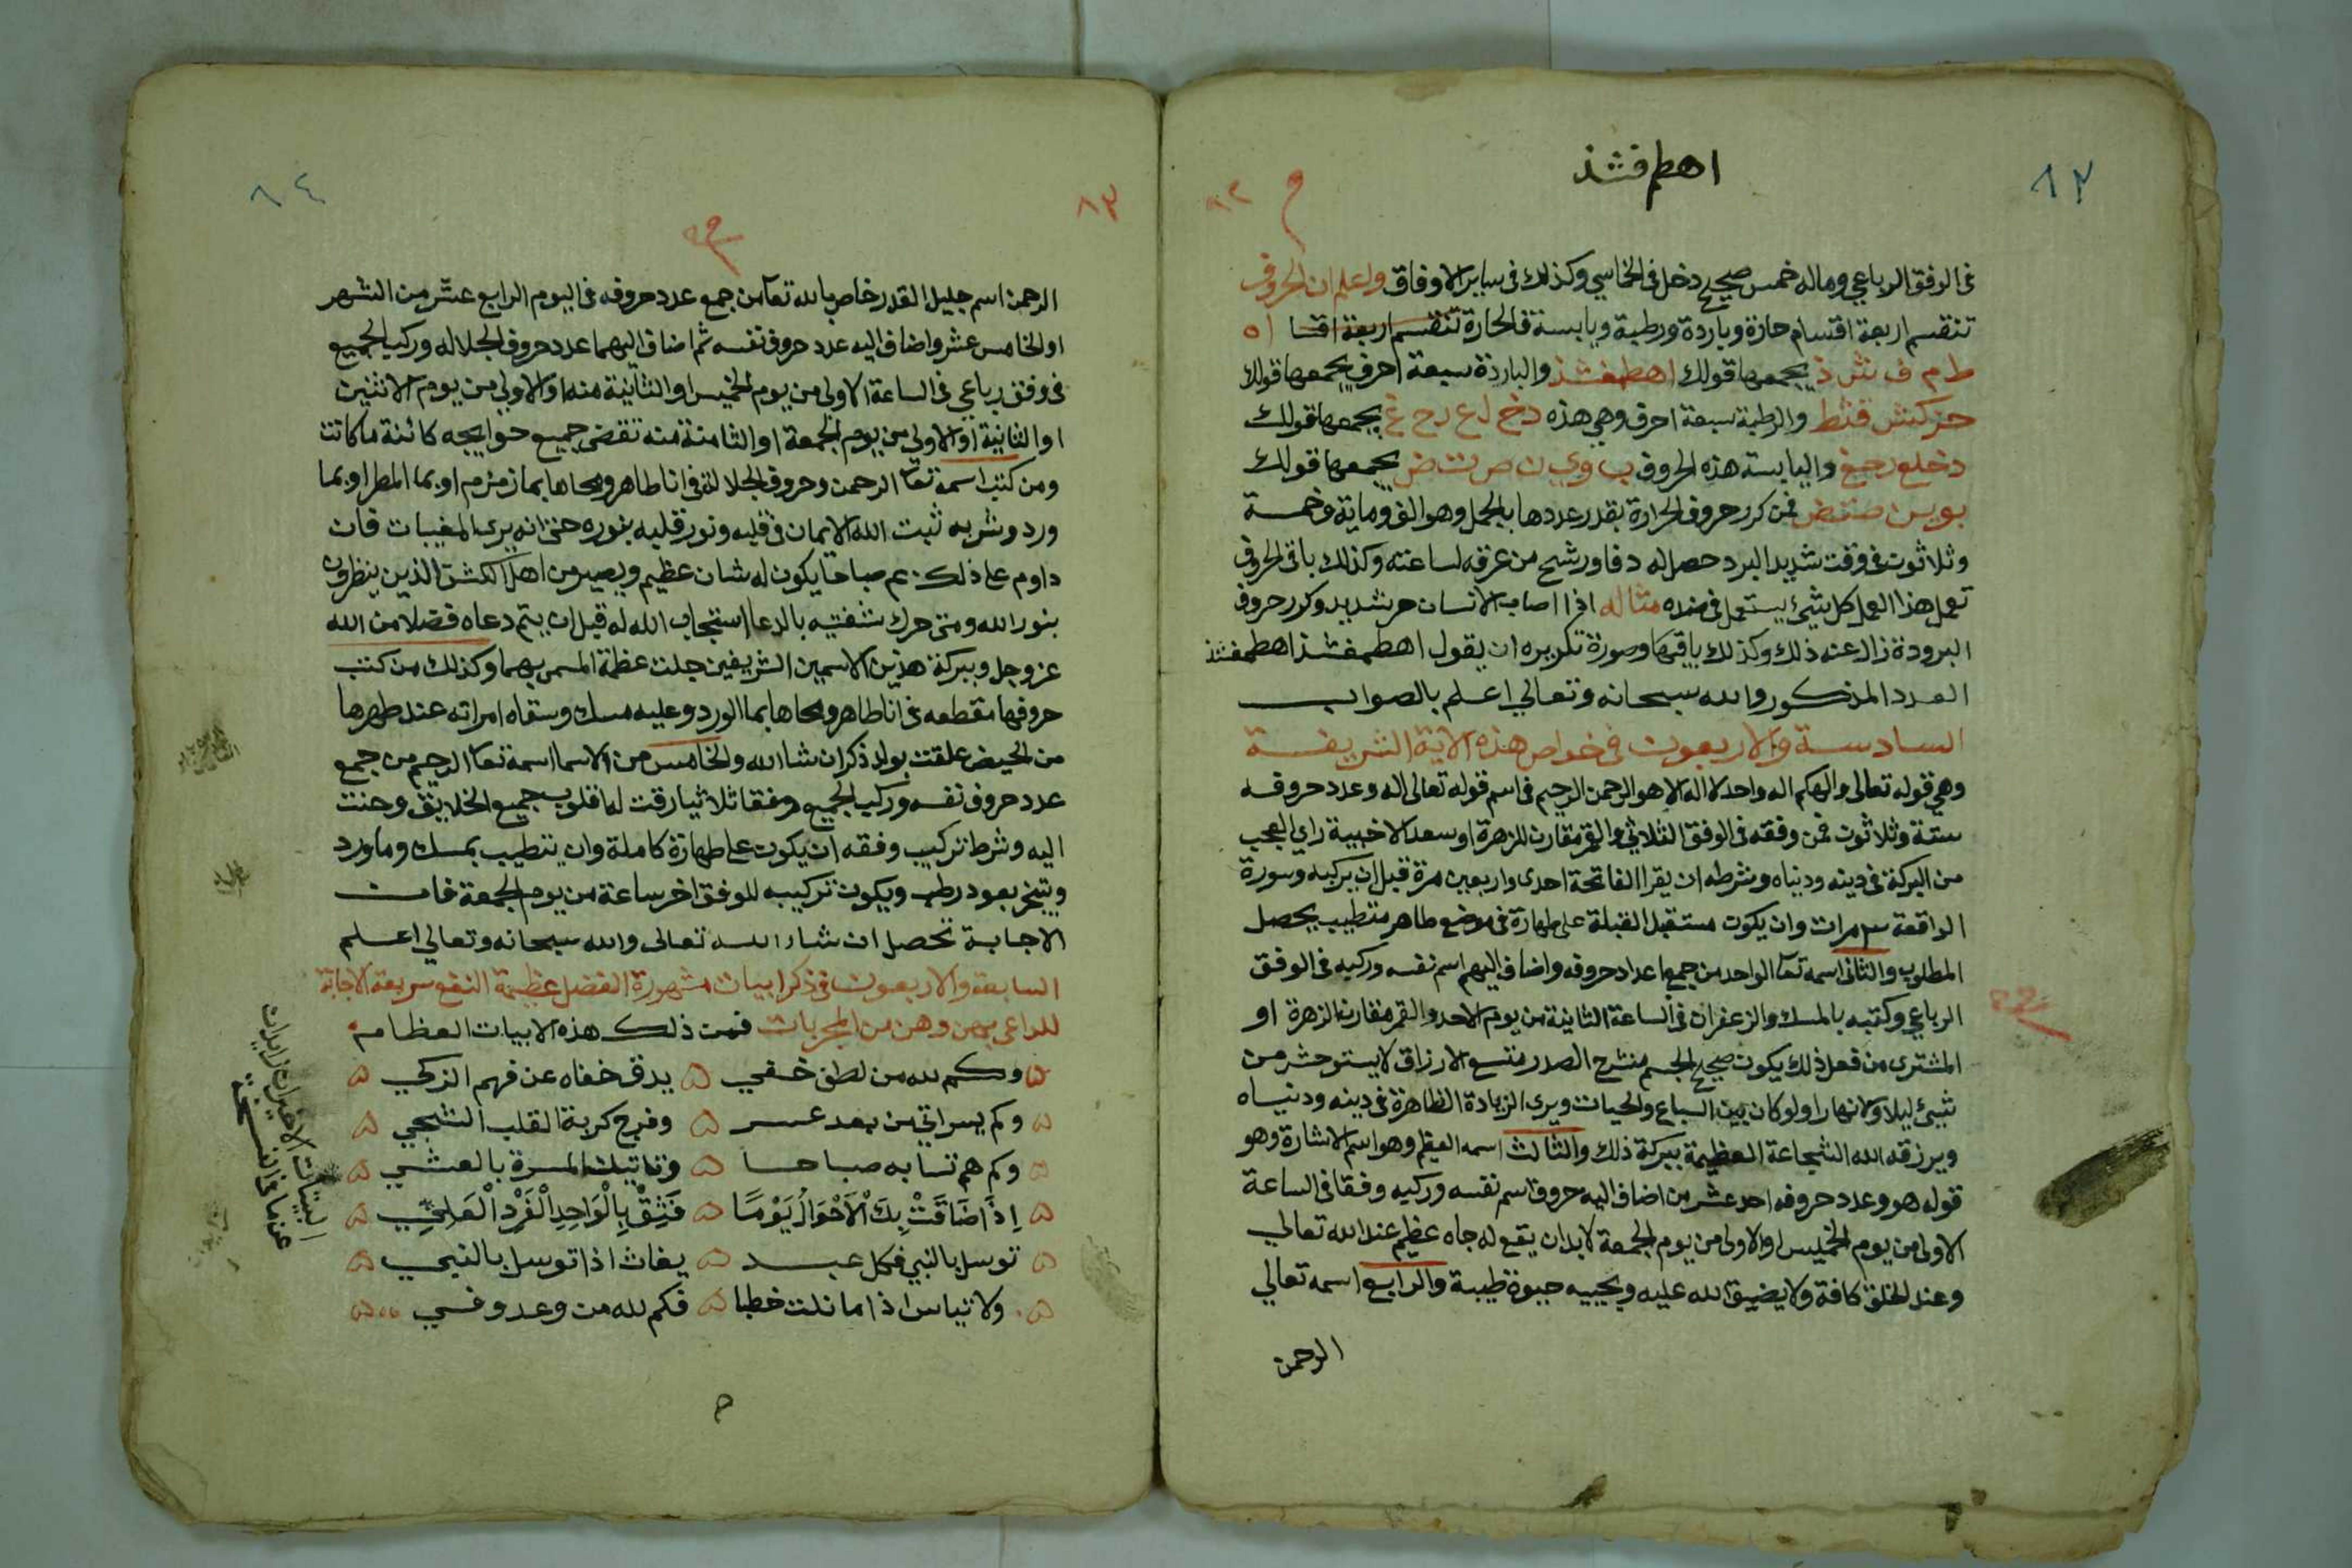 اهطم فشذ
٨٣
٨٢
في الوفق الرباعي وماله خمس صحيح دخل في الخاسي وكذلك في ساير الاوفاق واعلم ان الحروف
تنقسم اربعة اقسام حارة وباردة ورطبة ويابسة فالحارة تنقسم اربعة اقسا ا ه
ط م ف ش ذ يجمعها قولك اهطمفشذ والباردة سبعة احرف يجمعها قولك
جزكش قثظ والرطبة سبعة احرف وهي هذه دخ ل ع رح غ يجمعها قولك
دخلع رحغ واليابسة هذه الحروف ب و ي ن ص ت ض يجمعها قولك
بوين صتض فمن كرر حروف الحرارة بقدر عددها بالجمل وهو الف وماية وخمسة
وثلاثون في وقت شديد البرد حصل له دفا ورشح من عرقه لساعته وكذلك باقي الحروف
تعمل هذا العمل كل شيئ يستعمل في ضده مثاله اذا اصاب الانسان حر شديد وكرر حروف
البرودة زال عنه ذلك وكذلك باقيها وصورة تكريره ان يقول اهطمفشذ اهطمفشذ
العدد المذكور والله سبحانه وتعالي اعلم بالصواب
السادسة والاربعون في خواص هذه الآية الشريفة
وهي قوله تعالى والهكم اله واحد لا اله الا هو الرحمن الرحيم في اسم قوله تعالى اله وعدد حروفه
ستة وثلاثون فمن وفقه في الوفق الثلاثي والقمر مقارن للزهرة او سعد الاخبية راي العجب
من البركة في دينه ودنياه وشرطه ان يقرا الفاتحة احدى واربعين مرة قبل ان يركبه وسورة
الواقعة ٣ مرات وان يكون مستقبل القبلة على طهارة في موضع طاهر متطيب يحصل
المطلوب والثاني اسمه تعا الواحد من جمع اعداد حروفه واضاف اليهم اسم نفسه وركبه في الوفق
الرباعي وكتبه بالمسك والزعفران في الساعة الثانية من يوم الاحد والقمر مقارن الزهرة او
المشتري من فعل ذلك يكون صحيح الجسم منشرح الصدر متسع الارزاق لا يستوحش من
شيئ ليلا ولا نهارا ولو كان بين السباع والحيات ويرى الزيادة الظاهرة في دينه ودنياه
ويرزقه الله الشجاعة العظيمة ببركة ذلك والثالث اسمه العظيم وهو اسم الاشارة وهو
قوله هو وعدد حروفه احد عشر من اضاف اليه حروف اسم نفسه وركبه وفقا في الساعة
الاولى من يوم الخميس او الاولى من يوم الجمعة لا بد ان يقع له جاه عظيم عند الله تعالي
وعند الخلق كافة ولا يضيق الله عليه ويحييه حيوة طيبة والرابع اسمه تعالي
الرحمن
٨٣
٨٤
الرحمن اسم جليل القدر خاص بالله تعا من جمع عدد حروفه في اليوم الرابع عشر من الشهر
او الخامس عشر واضاف اليه عدد حروف نفسه ثم اضاف اليهما عدد حروف الجلاله وركب الجميع
في وفق رباعي في الساعة الاولى من يوم الخميس او الثانية منه او الاولى من يوم الاثنين
او الثانية او الاولى من يوم الجمعة او الثامنة منه تقضى جميع حوايجه كائنة ما كانت
ومن كتب اسمه تعا الرحمن وحروف الجلالة في انا طاهر ومحاها بما زمزم او بما المطر او بما
ورد وشربه ثبت الله الايمان في قلبه ونور قلبه بنوره حتى انه يرى المغيبات فان
داوم على ذلك م صباحا يكون له شان عظيم ويصير من اهل الكشف الذين ينظرون
بنور الله ومتى حرك شفتيه بالدعا استجاب الله له قبل ان يتم دعاه فضلا من الله
عز وجل وببركة هذين الاسمين الشريفين جلت عظمة المسمى بهما وكذلك من كتب
حروفها مقطعه في انا طاهر ومحاها بما الورد وعليه مسك وسقاه امراته عند طهرها
من الحيض علقت بولد ذكر ان شا الله والخامس من الاسما اسمه تعا الرحيم من جمع
عدد حروف نفسه وركب الجميع وفقا ثلاثيا رقت له قلوب جميع الخلايق وحنت
اليه وشرط تركيب وفقه ان يكون على طهارة كاملة وان يتطيب بمسك وماورد
ويتبخر بعود رطب ويكون تركيبه للوفق اخر ساعة من يوم الجمعة فان
الاجابة تحصل ان شاء الله تعالى والله سبحانه وتعالي اعلم
السابعة والاربعون في ذكر ابيات مشهورة الفضل عظيمة النفع سريعة الاجابة
للداعي بهن وهن من المجربات فمن ذلك هذه الابيات العظام
وكم لله من لطف خفي ۵ يدق خفاه عن فهم الزكي
وكم يسر اتي من بعد عسر ۵ وفرج كربة القلب الشجي
وكم هم تسا به صباحا ۵ وتاتيك المسرة بالعشي
اِذَا ضَاقَتْ بِكَ الْاَحْوَالُ يَوْمًا ۵ فَثِقْ بِالْوَاحِدِ الْفَرْدِ الْعَلِيِّ
توسل بالنبي فكل عبد ۵ يغاث اذا توسل بالنبي
ولا تياس اذا ما نلت خطبا ۵ فكم لله من وعد وفي
البيتان الاخيران زايدان